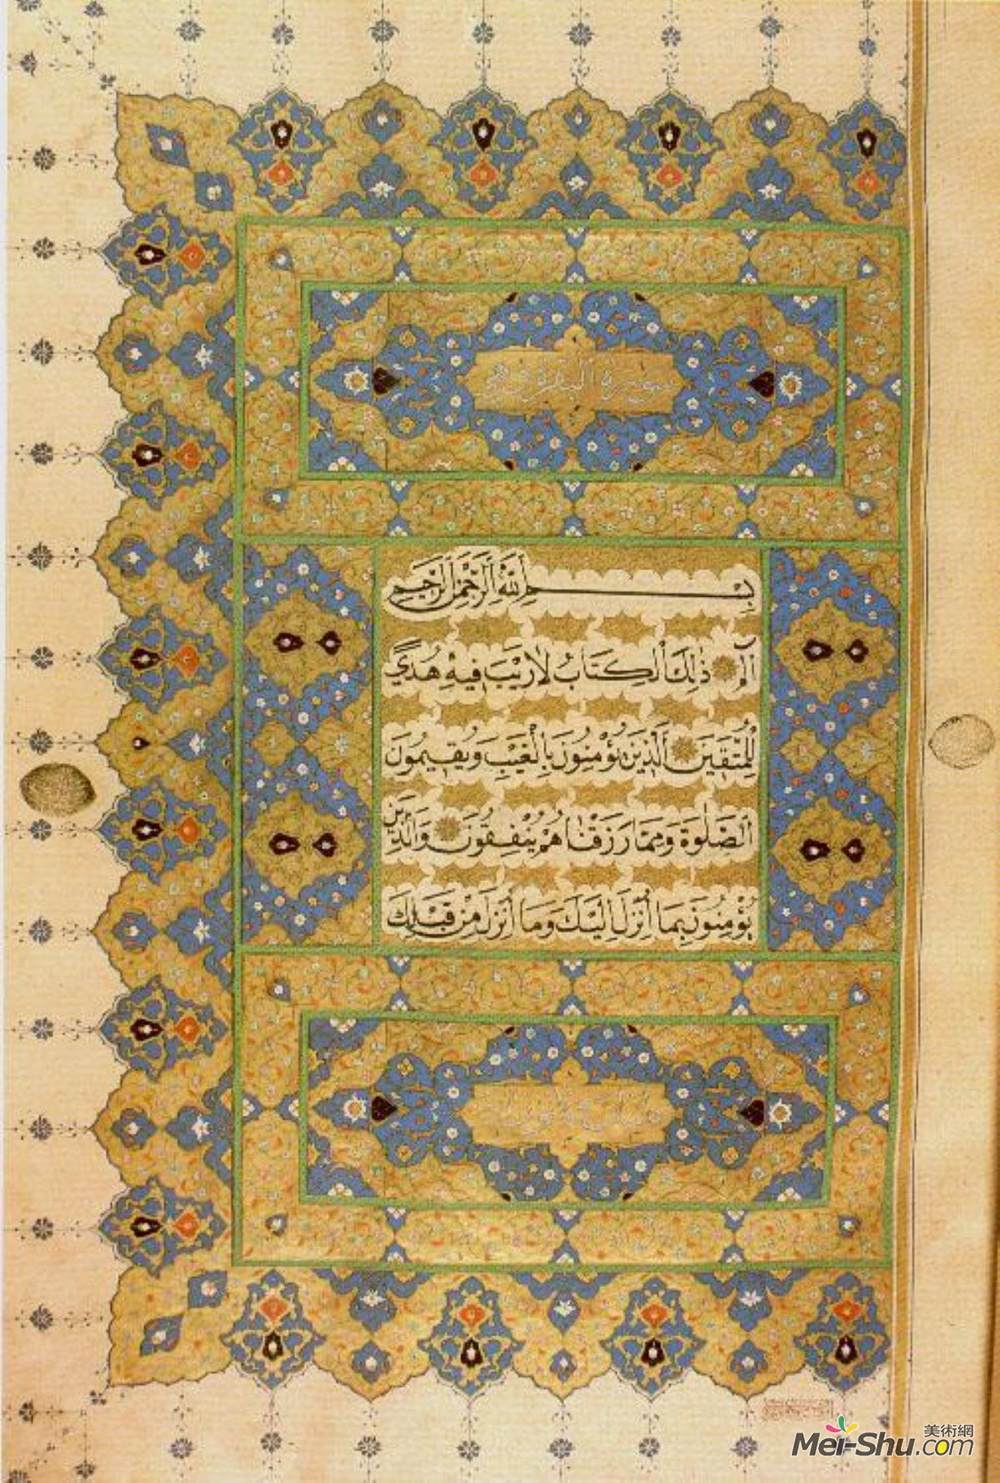 سورة البقرة
بِسْمِ اللهِ الرَّحْمٰنِ الرَّحِيمِ
الٓمٓ ذٰلِكَ الْكِتَابُ لَا رَيْبَ فِيهِ هُدًى
لِلْمُتَّقِينَ الَّذِينَ يُؤْمِنُونَ بِالْغَيْبِ وَيُقِيمُونَ
الصَّلٰوةَ وَمِمَّا رَزَقْنَاهُمْ يُنْفِقُونَ وَالَّذِينَ
يُؤْمِنُونَ بِمَا أُنْزِلَ إِلَيْكَ وَمَا أُنْزِلَ مِنْ قَبْلِكَ
美術網
Mei-Shu.com